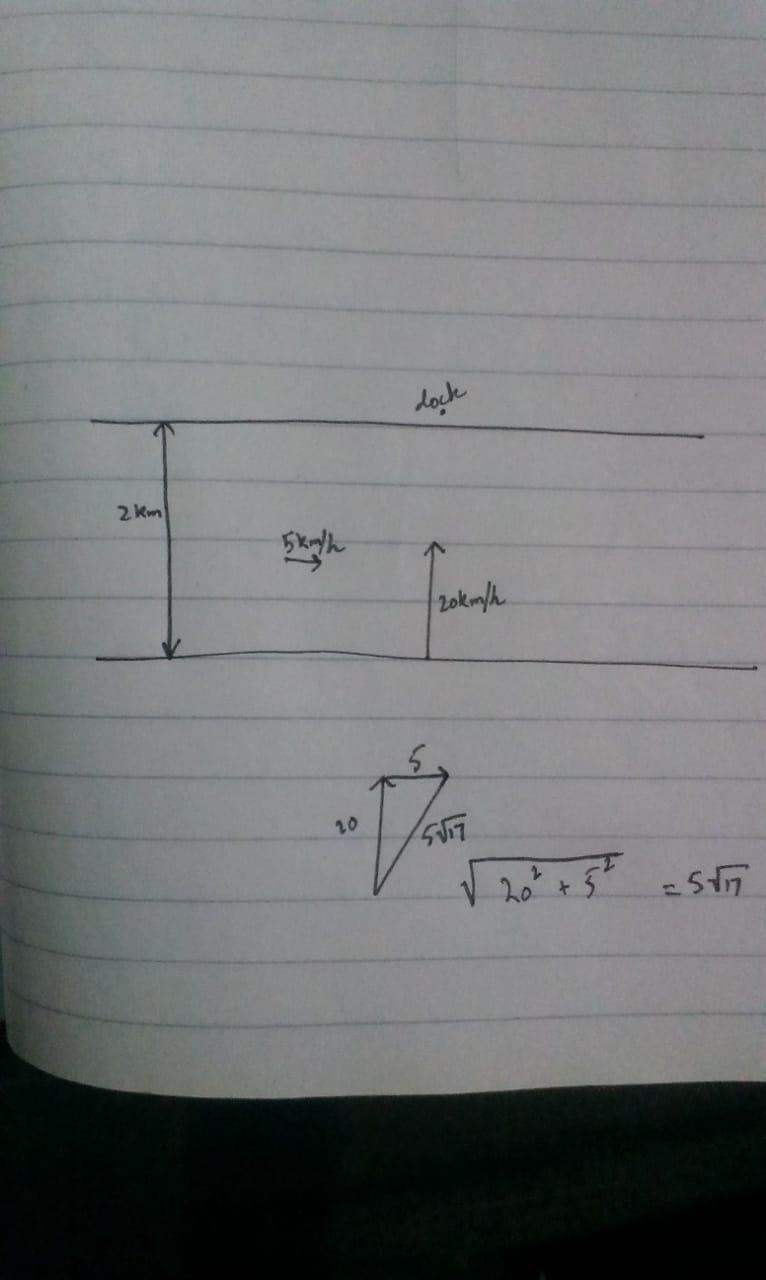 dock
2 km
5km/h
20km/h
5
20
5√17
√20² + 5² = 5√17